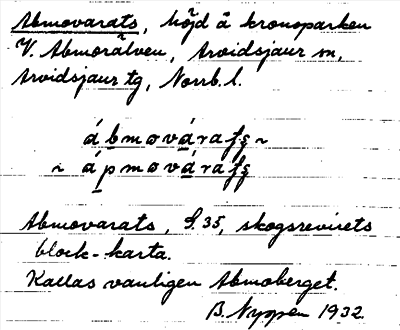 Abmovarats, höjd å kronoparken
V. Abmorälven, Arvidsjaur sn,
Arvidsjaur tg, Norrb. l.
ábmováraſs ~
~ ápmováraſs
Abmovarats, S. 35, skogsrevirets
block-karta.
Kallas vanligen Abmoberget.
B. Nyppen 1932